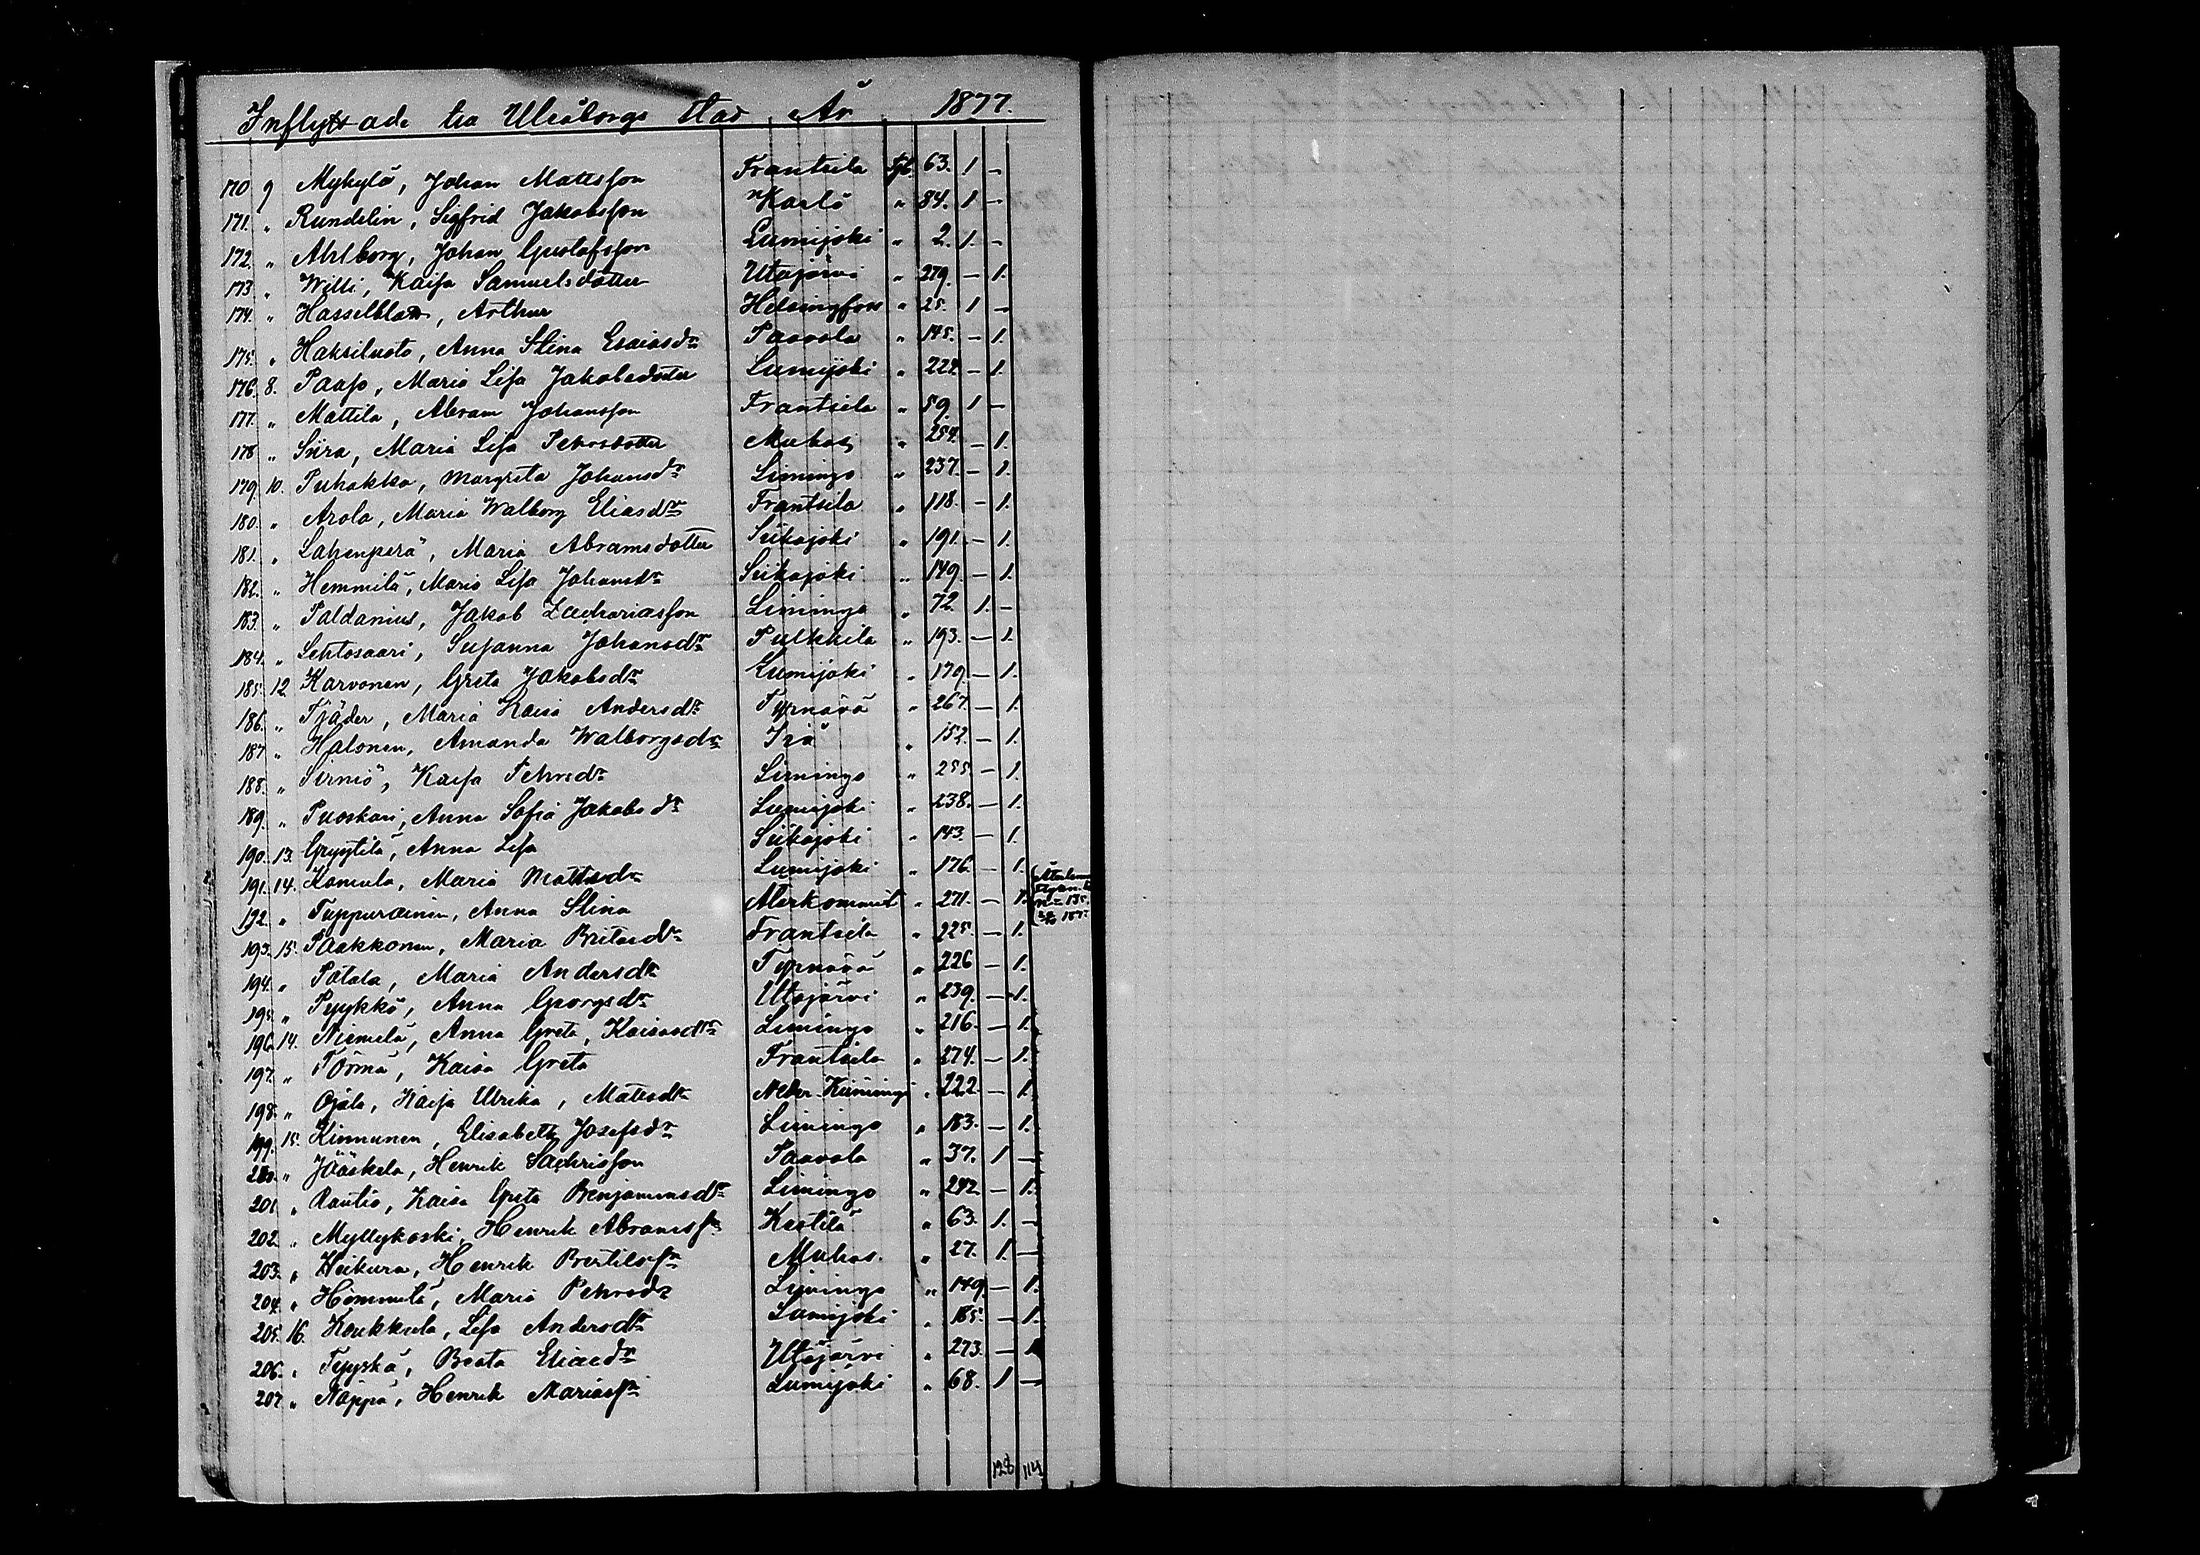 Inflyttade till Uleåborgs Stad År 1877.
170 9 Mykylä, Johan Mattsson Frantsila Tjl. 63. 1 –
171. " Rundelin, Sigfrid Jakobsson Karlö " 84. 1 –
172. " Ahlborg, Johan Gustafsson Lumijoki " 2. 1. –
173 " Willi, Kaisa Samuelsdotter Utajärvi " 279. – 1.
174. " Hasselblad, Arthur Helsingfors " 25. 1 –
175. " Haksiluoto, Anna Stina Esaiasdr Paavola " 145. – 1.
176. 8. Paaso, Maria Lisa Jakobsdotter Lumijoki " 224. – 1.
177. " Mattila, Abram Johansson Frantsila " 59. 1 –
178 " Siira, Maria Lisa Petersdotter Muhos " 254. – 1.
179. 10. Puhakka, Margreta Johansdr Limingo " 237. – 1.
180. " Arola, Maria Walborg Eliasdr Frantsila " 118. – 1.
181. " Lahenperä, Maria Abramsdotter Siikajoki " 191. – 1.
182. " Hemmilä, Maria Lisa Johansdr Siikajoki " 149. – 1.
183. " Paldanius, Jakob Zachariasson Limingo " 72. 1. –
184. " Lehtosaari, Susanna Johansdr Pulkkila " 193. – 1.
185. 12 Karvonen, Greta Jakobsdr Lumijoki " 179. – 1.
186. " Tjäder, Maria Kaisa Andersdr Tyrnävä " 267. – 1.
187 " Halonen, Amanda Walborgsdr Ijå " 152. – 1.
188. " Sirniö, Kaisa Petersdr Limingo " 255. – 1.
189. " Puoskari, Anna Sofia Jakobsdr Lumijoki " 238. – 1.
190. 13. Gryytilä, Anna Lisa Siikajoki " 143. – 1.
191. 14. Kamula, Maria Mattsdr Lumijoki " 176. – 1.
192. " Tuppurainen, Anna Stina Återkommit " 271. – 1.
193. 15. Paakkonen, Maria Britasdr Frantsila " 225. – 1.
194. " Pätala, Maria Andersdr Tyrnävä " 226 – 1.
195. " Pyykkö, Anna Georgsdr Utajärvi " 239. – 1.
196. 14. Niemelä, Anna Greta, Kaisasdr Limingo " 216. – 1.
197. " Törmä, Kaisa Greta Frantsila " 274. – 1.
198. " Ojala, Kaisa Ulrika, Mattsdr Neder-Kiiminge " 222. – 1.
199. 15. Kinnunen, Elisabeth Josefsdr Limingo " 183. – 1.
200. " Jääskelä, Henrik Sachrisson Paavola " 37. 1 –
201. " Rautio, Kaisa Greta Benjaminsdr Limingo " 242. – 1.
202. " Myllykoski, Henrik Abramss. Kestilä " 63. 1. –
203. " Heikura, Henrik Bertilss. Muhos. " 27. 1. –
204. " Hemmilä, Maria Petersdr Limingo " 149. – 1.
205. 16. Koukkula, Lisa Andersdr Lumijoki " 185. – 1.
206. " Tyyskä, Beata Eliasdr Utajärvi " 273. – 1
207. " Näppä, Henrik Mariass. Lumijoki " 68. 1 –
128 114